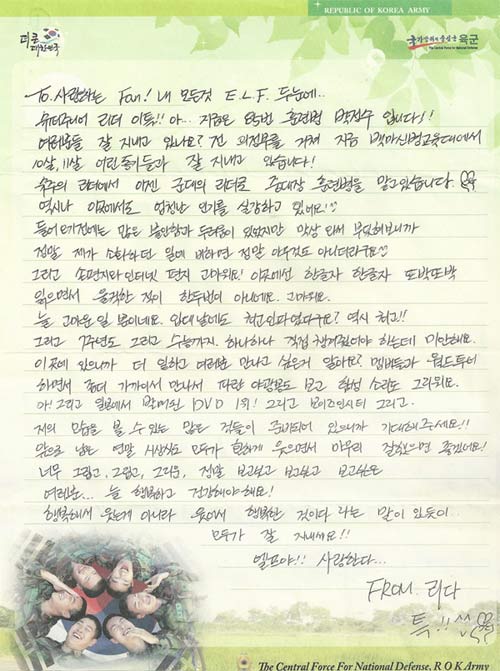 REPUBLIC OF KOREA ARMY
대한민국
육군
The Central Force for National Defense
To. 사랑하는 Fan! 내 모든것 E.L.F. 두눈에..
슈퍼주니어 리더 이특!! 아... 지금은 훈련병 박정수 입니다!
여러분들 잘 지내고 있나요? 전 지금 백마신병교육대에서
10살, 11살 어린 동이들과 잘 지내고 있습니다!
슈주의 리더에서 이젠 군대의 리더로 중대장 훈련병을 맡고있습니다
역시나 이곳에서도 엄청난 인기를 실감하고 있네요!
들어오기전에는 많은 불안함과 두려움이 있었지만 막상 와서 부딪혀보니까
정말 제가 소화하던 일에 비하면 정말 아무것도 아니더라구요
그리고 손편지와 인터넷 편지 고마워요! 이곳에선 한글자 한글자 또박또박
읽으면서 울컥한 적이 한두번이 아니에요. 고마워요.
늘 고마운 일 뿐이네요. 입대날에도 최고인파였다구요? 역시 최고!!
그리고 7주년도 그리고 수능까지. 하나하나 직접 챙겨줬어야 하는데 미안해요.
이곳에 있으니까 더 일하고 여러분 만나고 싶은거 알아요? 멤버들과 월드투어
하면서 좀더 가까이서 만나서 파란 야광봉도 보고 함성 소리도 그리워요.
아! 그리고 일본에서 발매된 DVD 1위! 그리고 보이즈인시티 그리고..
저의 모습을 볼 수 있는 많은 것들이 준비되어 있으니까 기대해주세요!!
앞으로 남은 연말 시상식도 모두가 환하게 웃으면서 마무리 잘했으면 좋겠어요!
너무 그립고, 그립고, 그리운, 정말 보고싶고 보고싶고 보고싶은
여러분... 늘 행복하고 건강해야해요!
행복해서 웃는게 아니라 웃어서 행복한 것이다 라는 말이 있듯이..
모두가 잘 지내세요!!
엘프야!! 사랑한다...
FROM. 리다
특!!
The Central Force For National Defense, R O K Army